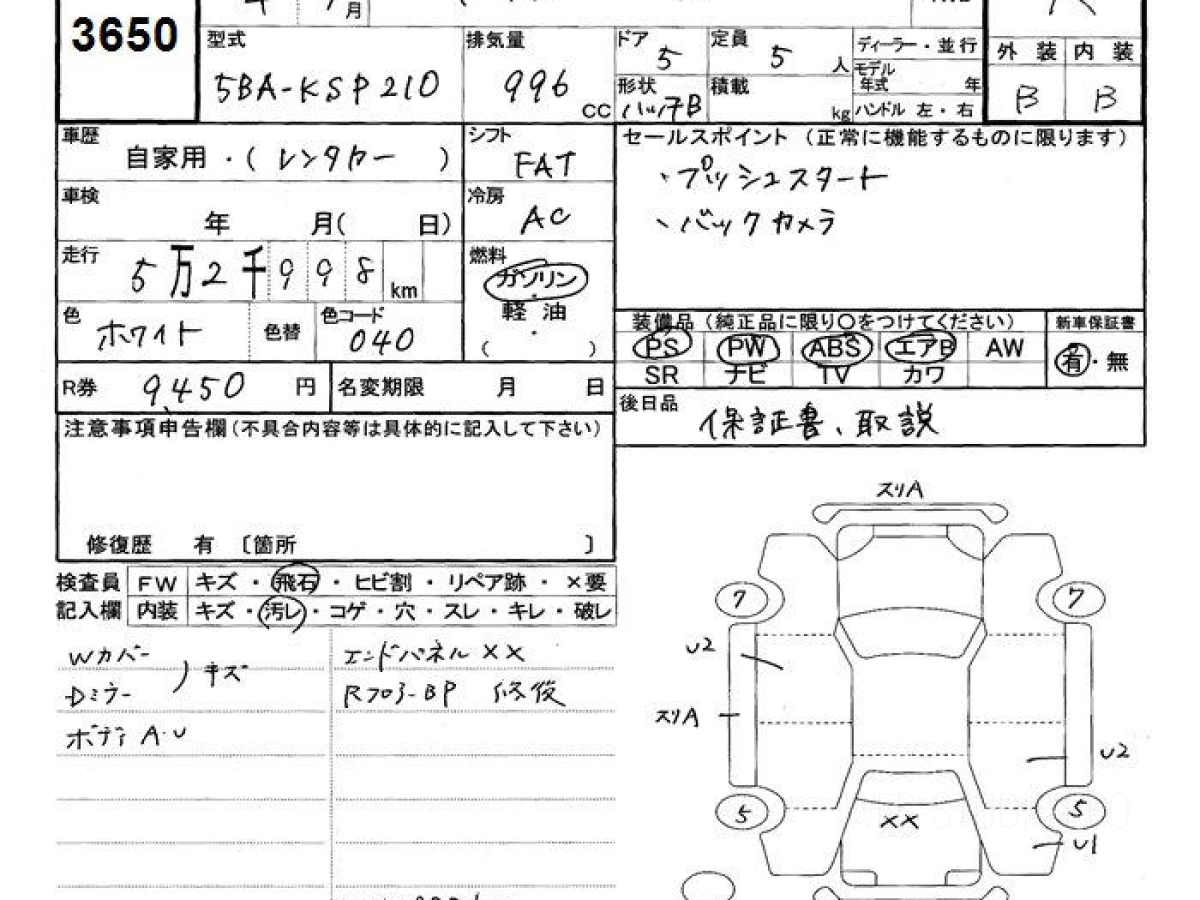 月
3650
型式 排気量 ドア 5 定員 5 人 ディーラー・並行 外装 内装
5BA-KSP210 996 CC 形状 ハッチB 積載 kg モデル年式 年 B B
ハンドル 左・右
車歴 自家用・( レンタカー ) シフト FAT セールスポイント (正常に機能するものに限ります)
・プッシュスタート
車検 年 月( 日) 冷房 AC ・バックカメラ
走行 5万2千998 km 燃料 ガソリン
軽油
( ・ )
色 ホワイト 色替 色コード 040
装備品 (純正品に限り〇をつけてください) 新車保証書
PS PW ABS エアB AW 有・無
SR ナビ TV カワ
R券 9,450 円 名変期限 月 日
後日品 保証書、取説
注意事項申告欄(不具合内容等は具体的に記入して下さい)
修復歴 有 〔箇所 〕
検査員 FW キズ・飛石・ヒビ割・リペア跡・×要
記入欄 内装 キズ・汚レ・コゲ・穴・スレ・キレ・破レ
Wカバー エンドパネル XX
Dミラー キズ
ボディ A・U
スリA
7 7
U2
スリA
U2
5 5
XX
U1